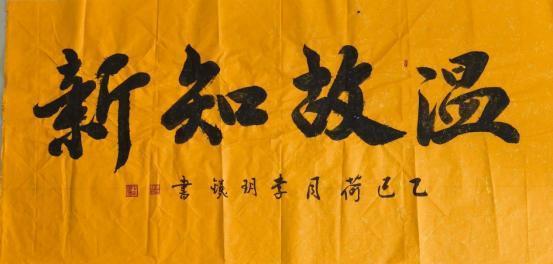 温故知新
乙巳荷月李玥鋑書